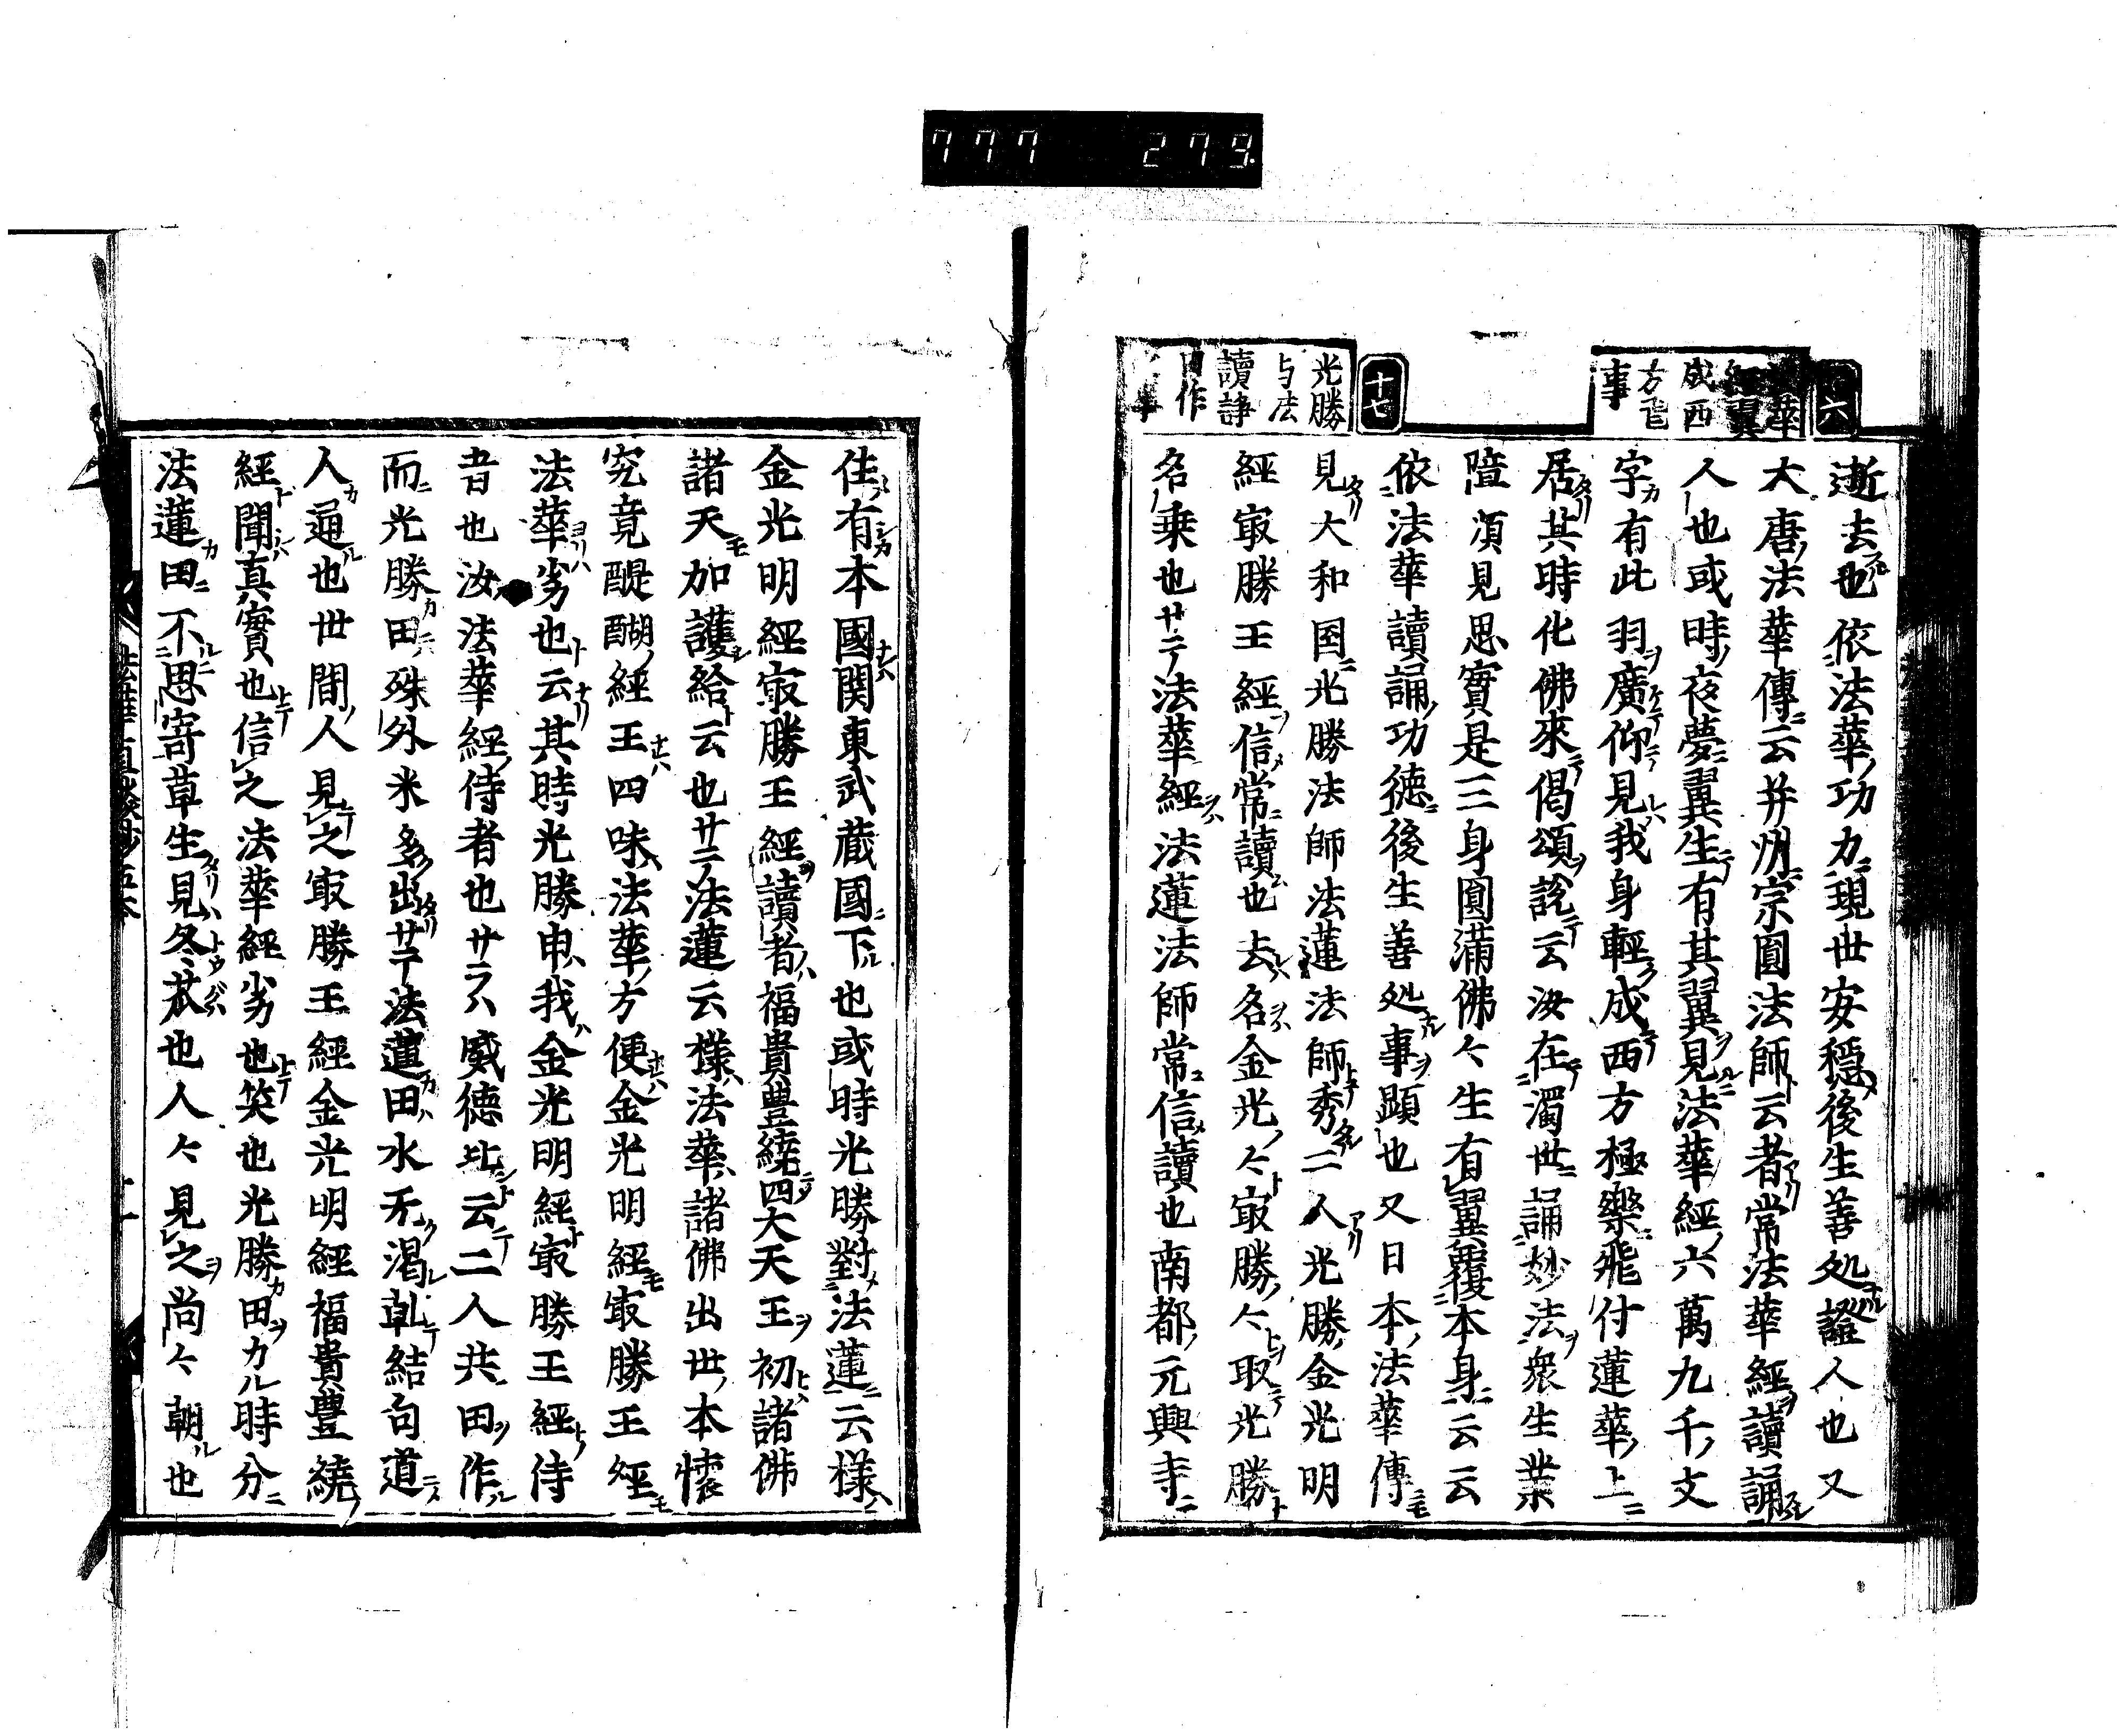 777 279.
十六
法華
經翼
成西
方飛
事
十七
光勝
与法
讀諍
田作
事
逝去也依法華功力現世安穩後生善処證人也又
大唐法華傳云并州宗圓法師云者常法華經讀誦
人也或時夜夢翼生有其翼見法華經六萬九千文
字有此羽廣仰見我身輕成西方極樂飛付蓮華上
居其時化佛來偈頌說云汝在濁世誦妙法衆生業
隨須見思實是三身圓滿佛々生有翼覆本身云云
依法華讀誦功德後生善処事顕也又日本法華傳
見大和国光勝法師法蓮法師秀二人光勝金光明
經㝡勝王經信常讀也去名金光々㝡勝々取光勝
名乗也サテ法華經法蓮法師常信讀也南都元興寺
住有本國関東武蔵國下也或時光勝對法蓮云様
金光明經㝡勝王經讀者福貴豊繞四大天王初諸佛
諸天加護給云也サテ法蓮云様法華諸佛出世本懐
究竟醍醐經王四味法華方便金光明經㝡勝王經
法華劣也云其時光勝申我金光明經㝡勝王經侍
者也汝法華經侍者也サラハ威德比云二人共田作
而光勝田殊外米多出サテ法蓮田水无渇乾結句道
人通也世間人見之㝡勝王經金光明經福貴豊繞
經聞真實也信之法華經劣也笑也光勝田カル時分
法蓮田不思寄草生見冬苽也人々見之尚々朝也